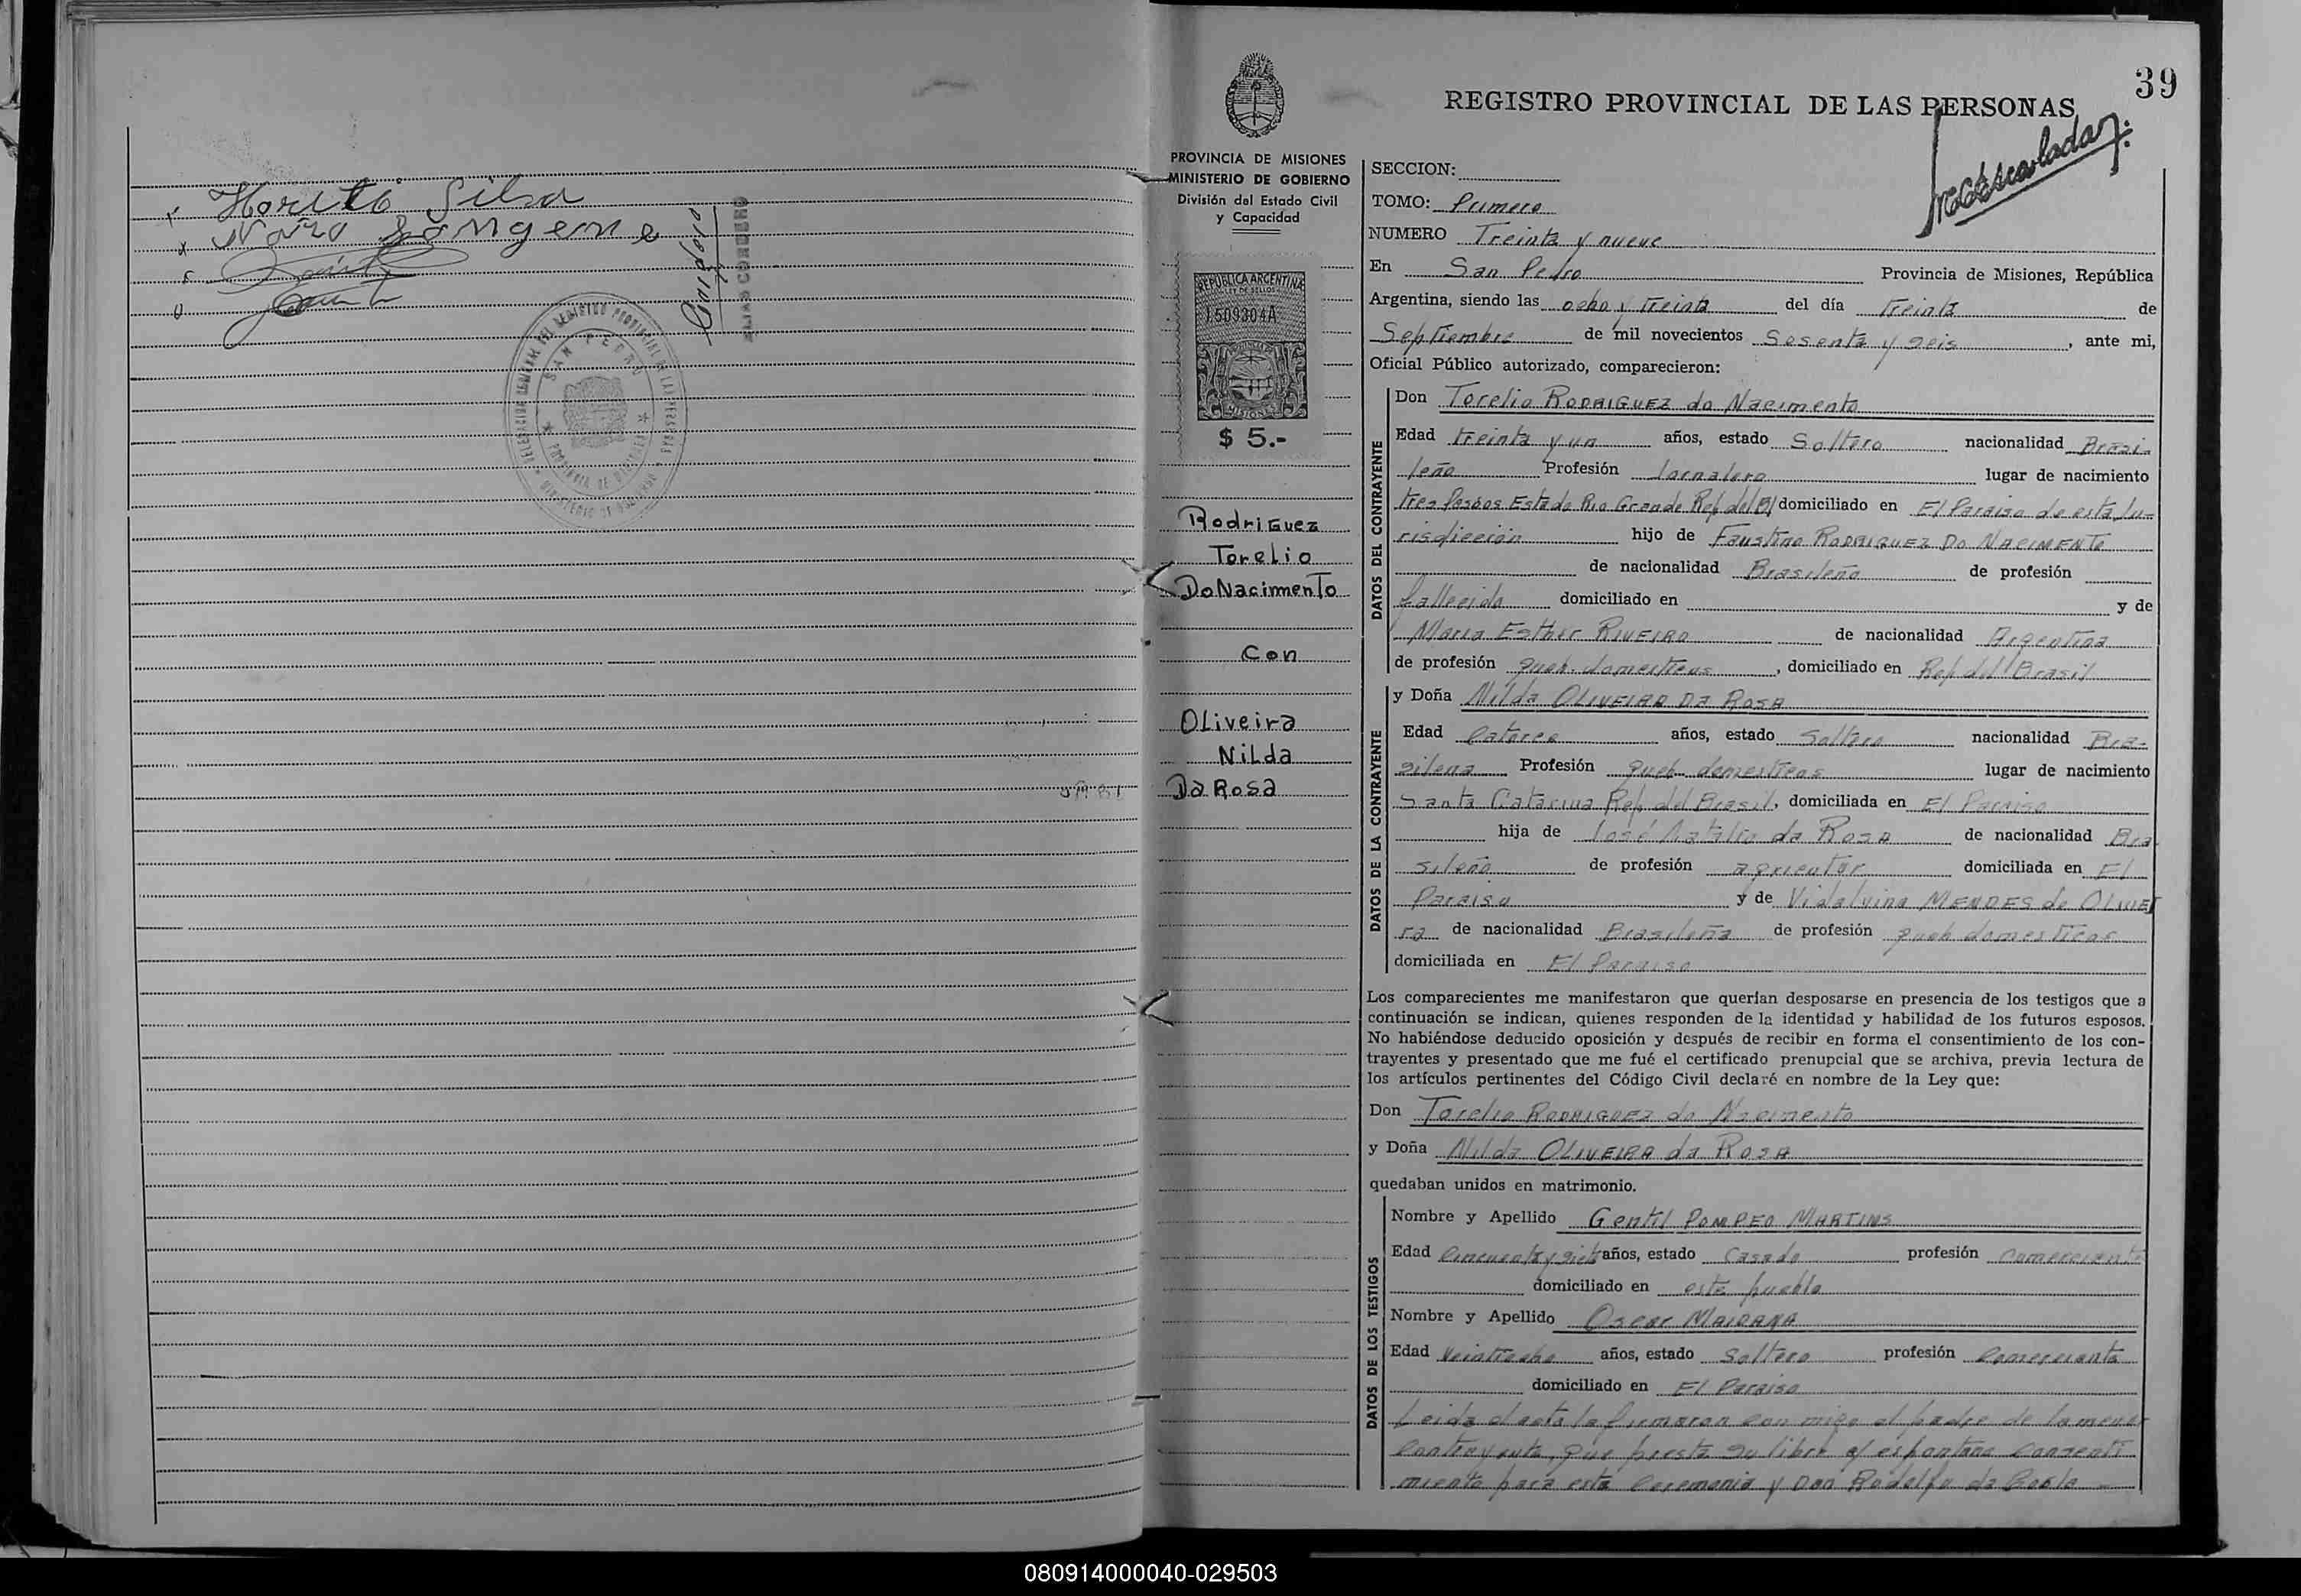 Silva
ELIAS CORDERO
SAN PEDRO
39
REGISTRO PROVINCIAL DE LAS PERSONAS
PROVINCIA DE MISIONES
MINISTERIO DE GOBIERNO
División del Estado Civil
y Capacidad
REPUBLICA ARGENTINA
LEY DE SELLOS
1509304A
MISIONES
$ 5.-
Rodriguez
Torelio
Do Nacimento
Con
Oliveira
Nilda
Da Rosa
SECCION:
TOMO: Primero
NUMERO Treinta y nueve
En San Pedro Provincia de Misiones, República
Argentina, siendo las ocho y treinta del día treinta de
Septiembre de mil novecientos Sesenta y seis, ante mi,
Oficial Público autorizado, comparecieron:
DATOS DEL CONTRAYENTE
Don Torelio RODRIGUEZ do Nacimento
Edad treinta y un años, estado Soltero nacionalidad Brasi-
leño Profesión Jornalero lugar de nacimiento
tres Passos Estado Rio Grande Rep del B/ domiciliado en El Paraiso de esta Ju-
risdicción hijo de Faustino RODRIGUEZ DO NACIMENTO
de nacionalidad Brasileño de profesión
fallecido domiciliado en y de
Maria Esther RIVEIRO de nacionalidad Argentina
de profesión queh. domesticos, domiciliado en Rep del Brasil
DATOS DE LA CONTRAYENTE
y Doña Nilda OLIVEIRA DA ROSA
Edad Catorce años, estado Soltera nacionalidad Bra-
silena Profesión queh domesticos lugar de nacimiento
Santa Catarina Rep del Brasil, domiciliada en El Paraiso
hija de José Natalio da ROSA de nacionalidad Bra
sileño de profesión agricultor domiciliada en El
Paraiso y de Vidalvina MENDES de OLIVEI
ra de nacionalidad Brasileña de profesión queh domesticos
domiciliada en El Paraiso
Los comparecientes me manifestaron que querían desposarse en presencia de los testigos que a
continuación se indican, quienes responden de la identidad y habilidad de los futuros esposos.
No habiéndose deducido oposición y después de recibir en forma el consentimiento de los con-
trayentes y presentado que me fué el certificado prenupcial que se archiva, previa lectura de
los artículos pertinentes del Código Civil declaré en nombre de la Ley que:
Don Torelio RODRIGUEZ do Nacimento
y Doña Nilda OLIVEIRA da ROSA
quedaban unidos en matrimonio.
DATOS DE LOS TESTIGOS
Nombre y Apellido Gentil POMPEO MARTINS
Edad Cincuenta y siete años, estado Casado profesión Comerciante
domiciliado en este pueblo
Nombre y Apellido Oscar MAIDANA
Edad Veintiocho años, estado Soltero profesión Comerciante
domiciliado en El Paraiso
Leida el acta la firmaron con migo el padre de la menor
Contrayente, que presta su libre y espontane consenti
miento para esta Ceremonia y Don Rodolfo da
080914000040-029503